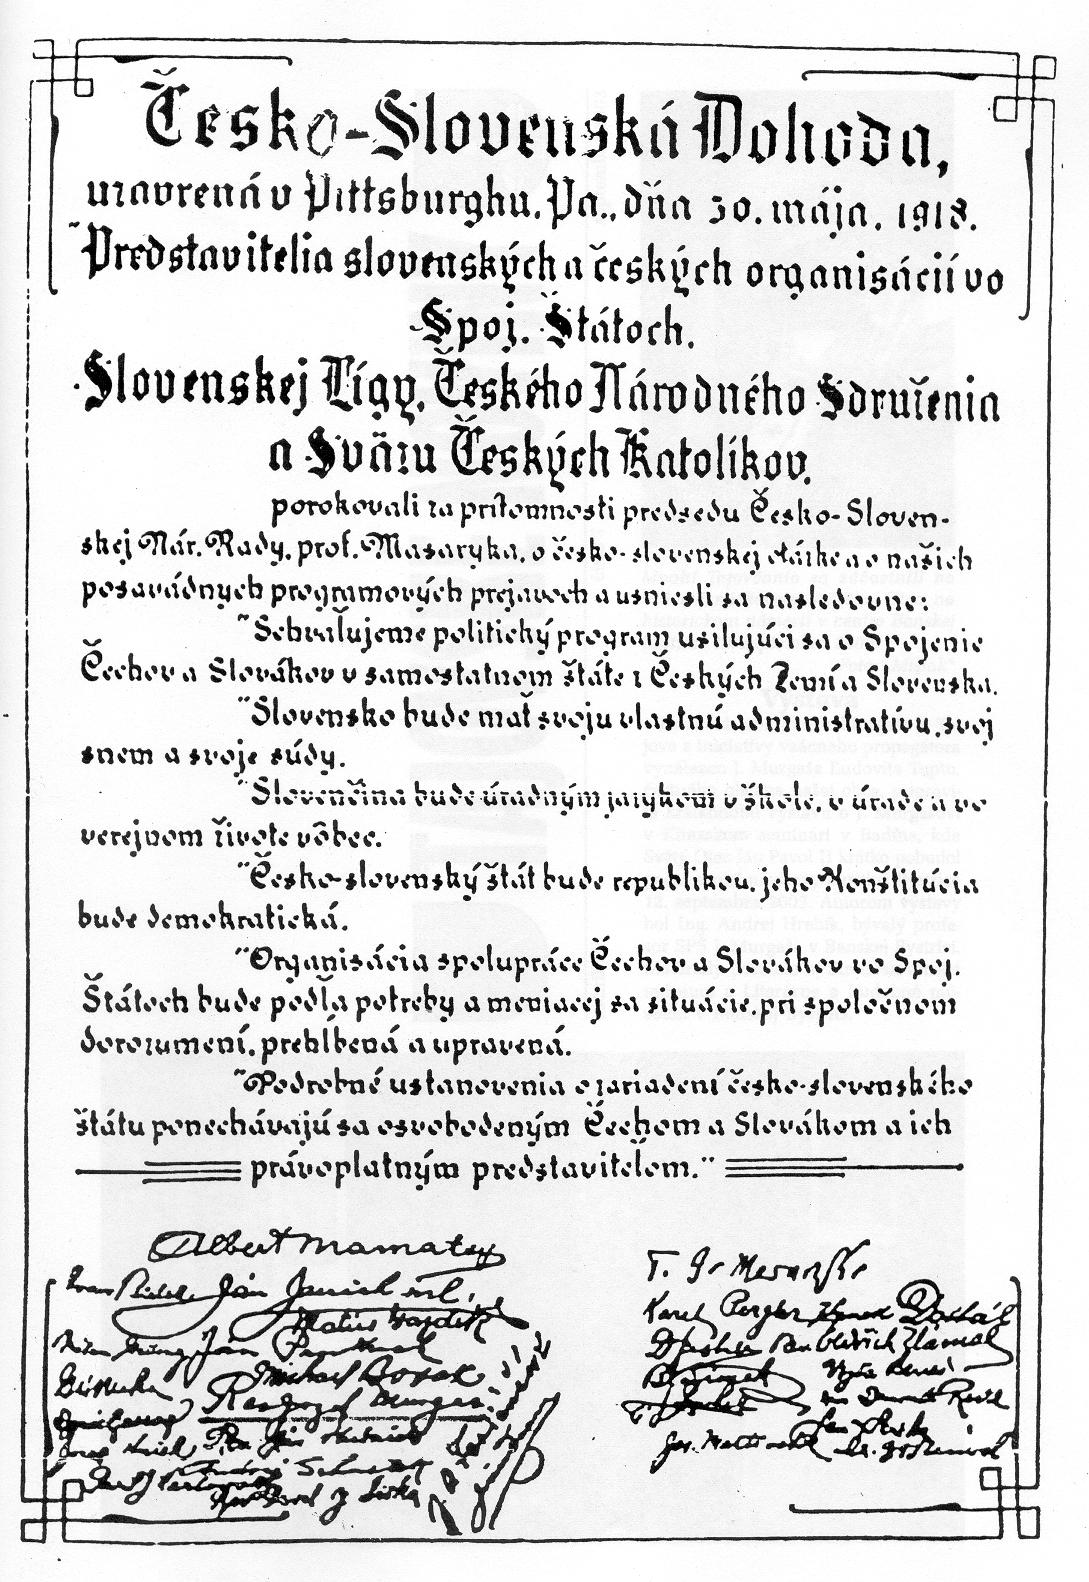 Česko-Slovenská Dohoda,
uzavrená v Pittsburghu, Pa., dňa 30. mája, 1918.
Predstavitelia slovenských a českých organisácií vo
Spoj. Štátoch,
Slovenskej Lígy, Českého Národného Sdruženia
a Sväzu Českých Katolíkov,
porokovali za prítomnosti predsedu Česko-Sloven-
skej Nár. Rady, prof. Masaryka, o česko-slovenskej otázke a o našich
posavádnych programových prejavoch a usniesli sa nasledovne:
"Schvaľujeme politický program usilujúci sa o Spojenie
Čechov a Slovákov v samostatnom štáte z Českých Zemí a Slovenska.
"Slovensko bude mať svoju vlastnú administratívu, svoj
snem a svoje súdy.
"Slovenčina bude úradným jazykom v škole, v úrade a vo
verejnom živote vôbec.
"Česko-slovenský štát bude republikou, jeho Konštitúcia
bude demokratická.
"Organisácia spolupráce Čechov a Slovákov vo Spoj.
Štátoch bude podľa potreby a meniacej sa situácie, pri spoločnom
dorozumení, prehĺbená a upravená.
"Podrobné ustanovenia o zariadení česko-slovenského
štátu ponechávajú sa osvobodeným Čechom a Slovákom a ich
právoplatným predstaviteľom."
Albert Mamatey
Ján Janček ml.
Michael Bosak
T. G. Masaryk
Karel Pergler